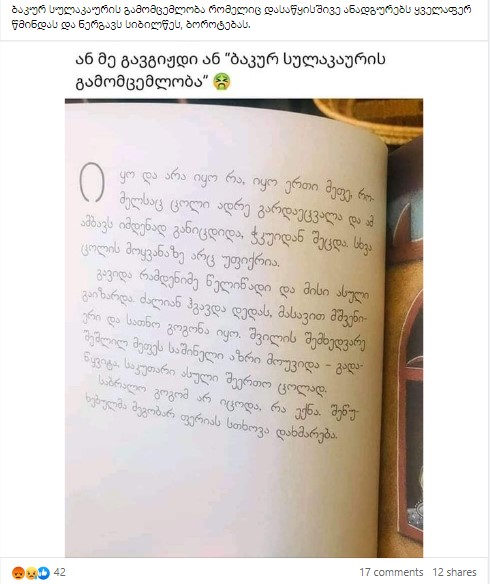 ბაკურ სულაკაურის გამომცემლობა რომელიც დასაწყისშივე ანადგურებს ყველაფერ
წმინდას და ნერგავს სიბილწეს, ბოროტებას.
ან მე გავგიჟდი ან “ბაკურ სულაკაურის
გამომცემლობა” 🤮
ოყო და არა იყო რა, იყო ერთი მეფე, რო-
მელსაც ცოლი ადრე გარდაეცვალა და ამ
ამბავს იმდენად განიცდიდა, ჭკუიდან შეცდა. სხვა
ცოლის მოყვანაზე არც უფიქრია.
გავიდა რამდენიმე წელიწადი და მისი ასული
გაიზარდა. ძალიან ჰგავდა დედას, მასავით მშვენი-
ერი და სათნო გოგონა იყო. შვილის შემხედვარე
შეშლილ მეფეს საშინელი აზრი მოუვიდა – გადა-
წყვიტა, საკუთარი ასული შეერთო ცოლად.
საბრალო გოგომ არ იცოდა, რა ექნა. შეწუ-
ხებულმა მეგობარ ფერიას სთხოვა დახმარება.
42
17 comments 12 shares